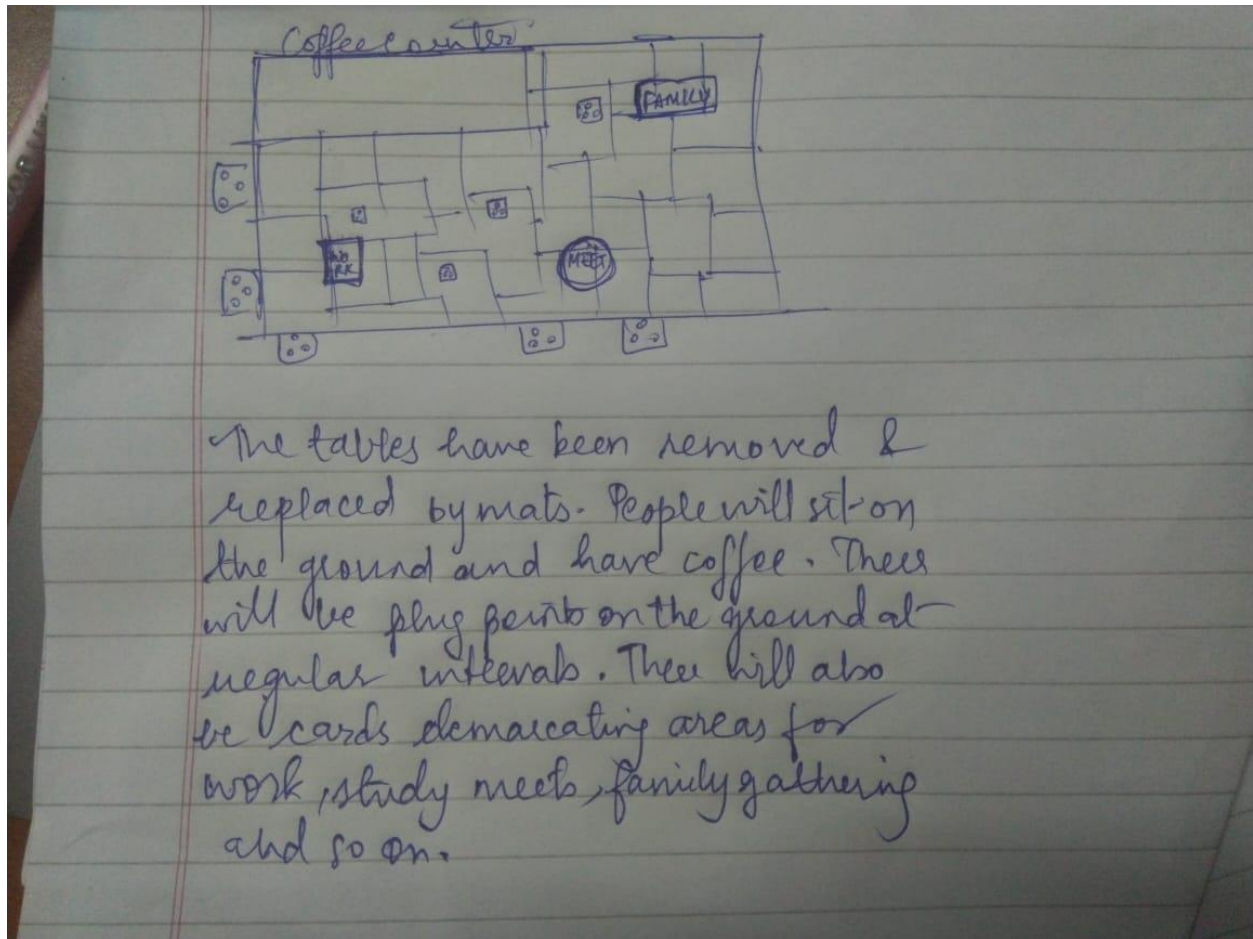 Coffee counter
FAMILY
WO
RK
MEET
The tables have been removed &
replaced by mats. People will sit on
the ground and have coffee. There
will be plug points on the ground at
regular intervals. There will also
be cards demarcating areas for
work, study meets, family gathering
and so on.